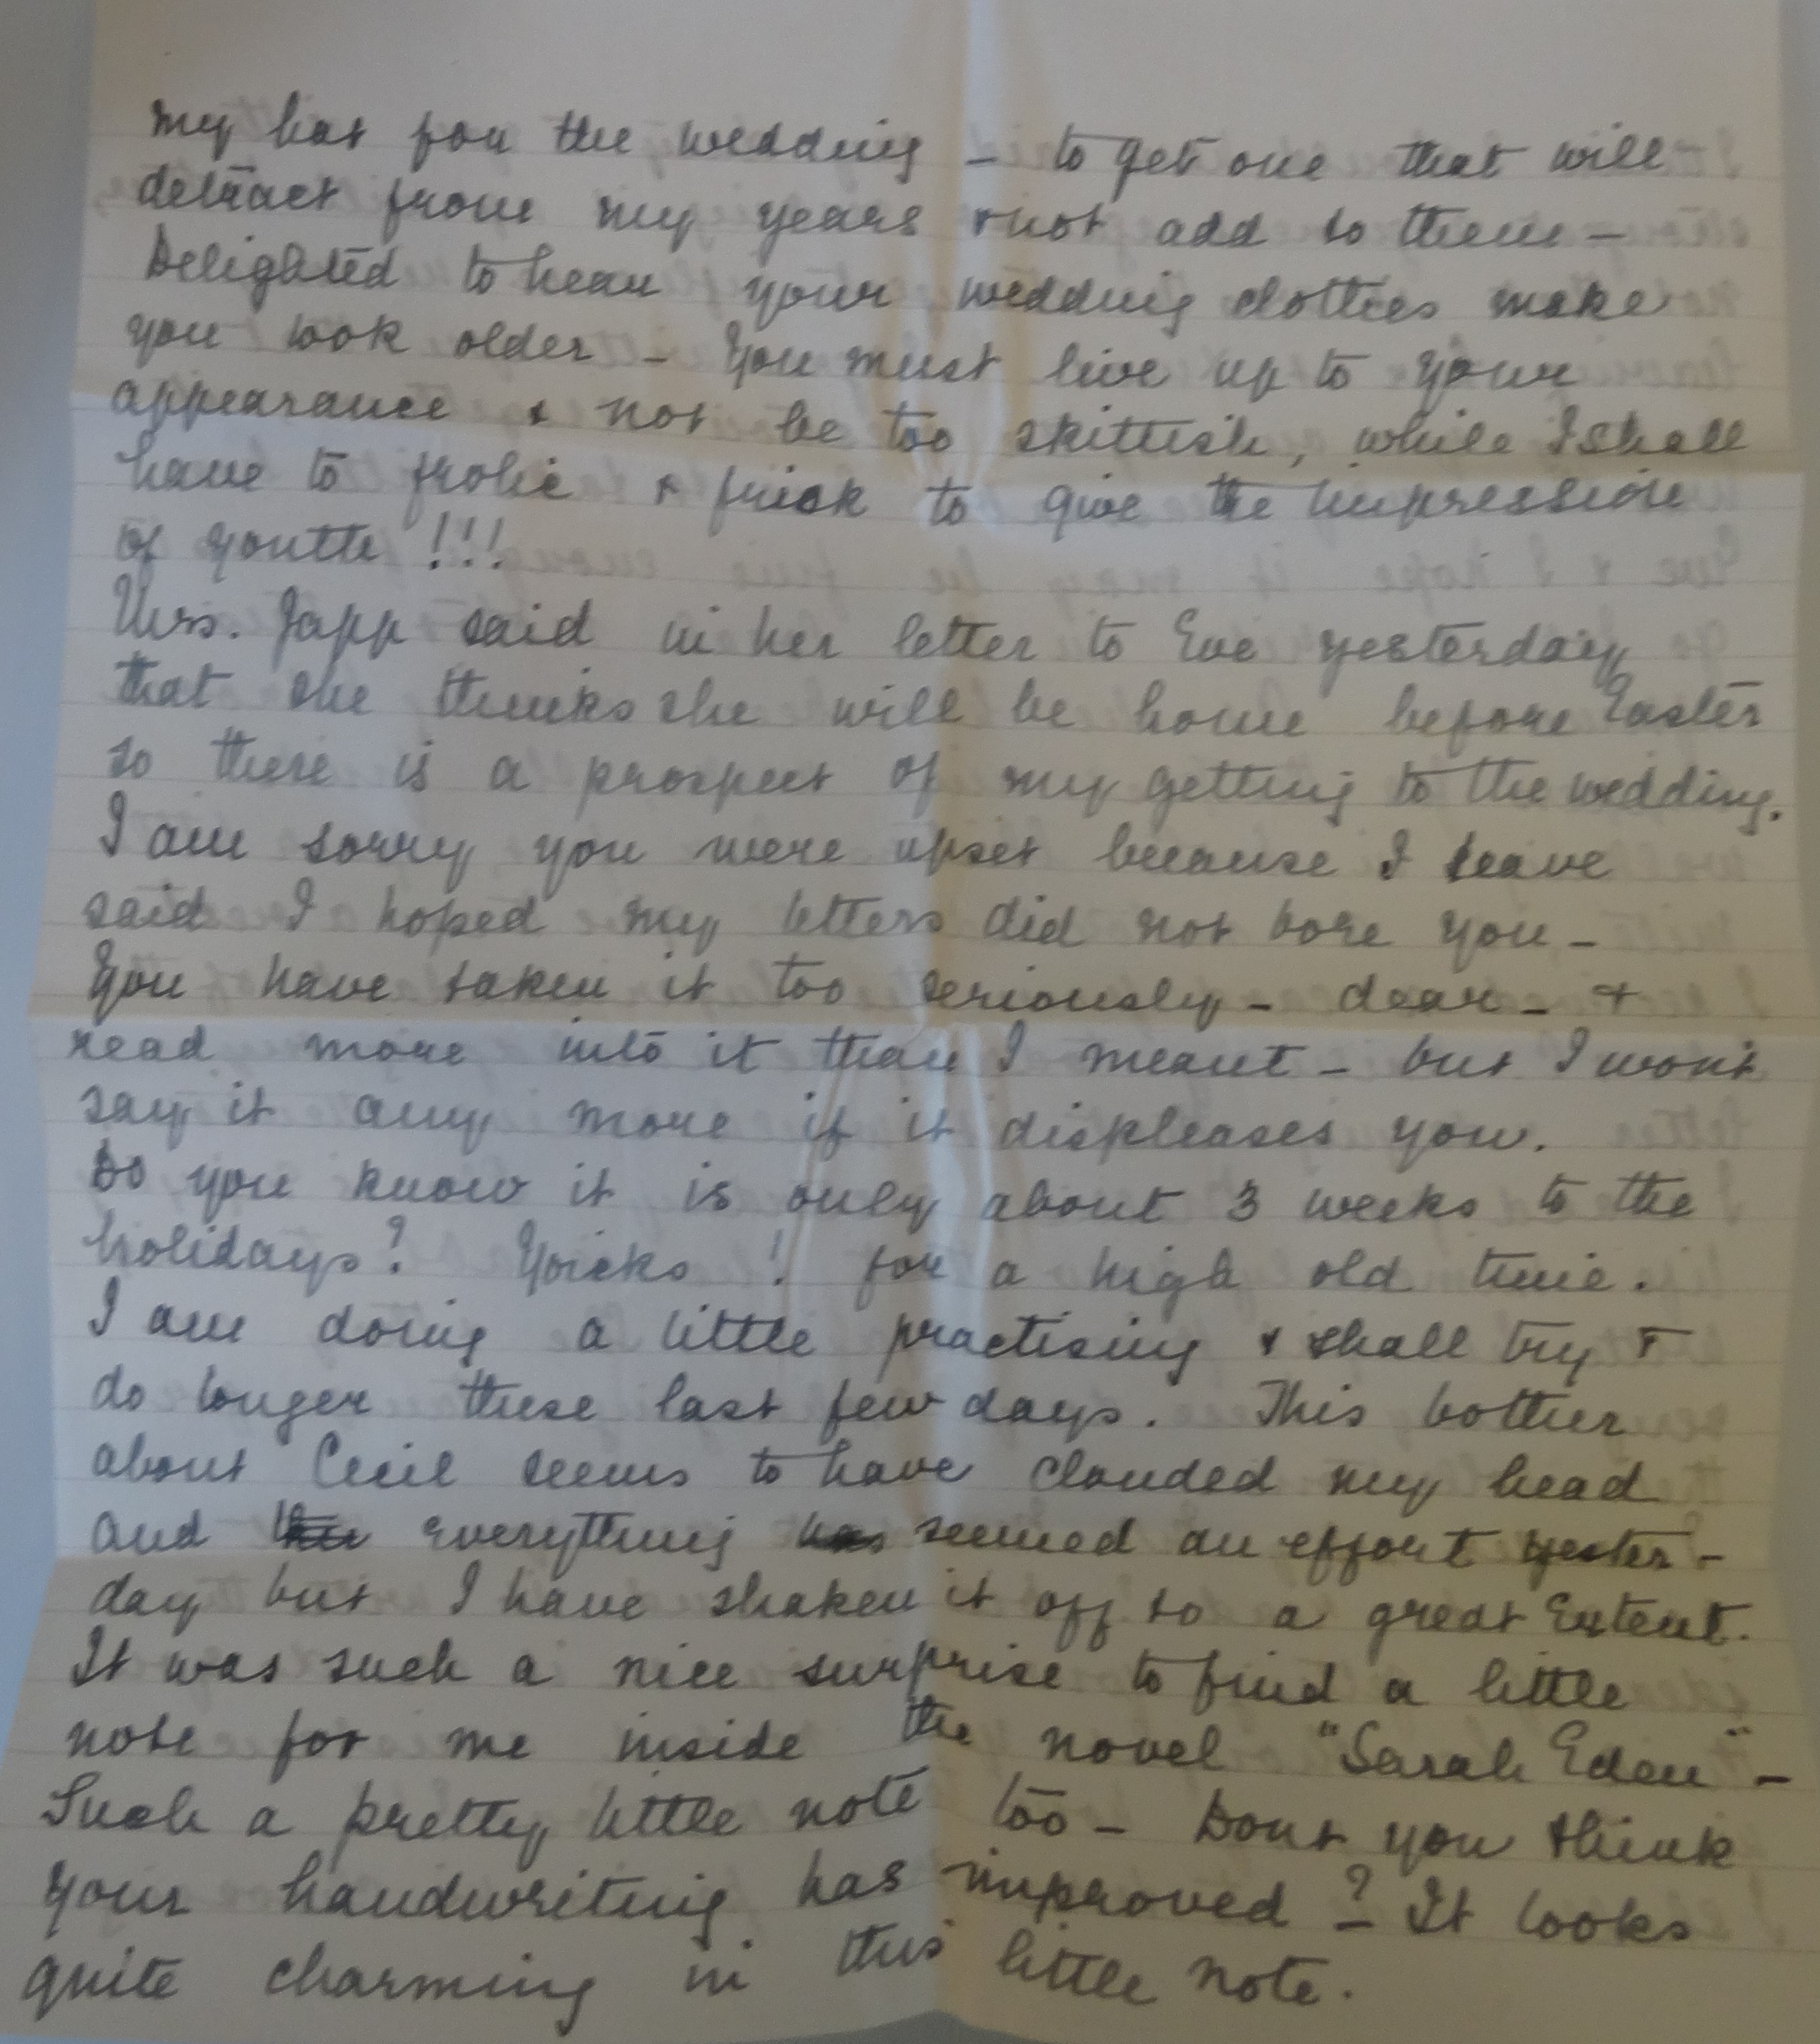 my hat for the wedding – to get one that will
detract from my years & not add to them –
Delighted to hear your wedding clothes make
you look older – You must live up to your
appearance & not be too skittish, while I shall
have to frolic & frisk to give the impression
of youth !!!
Mrs. Japp said in her letter to Eve yesterday
that she thinks she will be home before Easter
so there is a prospect of my getting to the wedding.
I am sorry you were upset because I have
said I hoped my letters did not bore you –
You have taken it too seriously – dear – &
read more into it than I meant – but I wont
say it any more if it displeases you.
Do you know it is only about 3 weeks to the
holidays? Yoicks ! for a high old time.
I am doing a little practising & shall try &
do longer these last few days. This bother
about Cecil seems to have clouded my head
and everything seemed an effort yester-
day but I have shaken it off to a great extent.
It was such a nice surprise to find a little
note for me inside the novel "Sarah Eden" –
Such a pretty little note too – Dont you think
your handwriting has improved ? – It looks
quite charming in this little note.